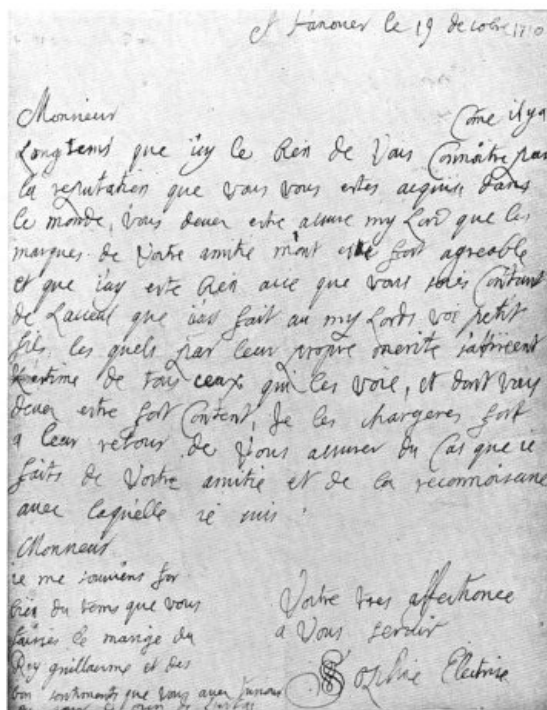 Hanover le 19 decobre 1710
Monsieur Come il y a
Longtems que i'ay le bien de Vous Connoitre par
la reputation que vous vous estes acquise dans
le monde, vous deues estre assure my Lord que les
marques de Vostre amitie m'ont esté fort agreable
et que i'ay este bien aise que vous soies Content
de Laceuil que i'ay fait au my Lords vos petit
fils les quels par leur propre merite s'attireent
L'estime de tous ceux qui les voie, et dont vous
deues estre fort Content, Je les chargeres fort
a leur retour de Vous assurer du Cas que ie
faits de Vostre amitie et de la reconnoisance
avec laquelle ie suis
Monsieur
ie me souviens for
bien du tems que vous
faisies le mariage du
Roy guillaume et des
bon sentiments que vous avez
Vostre tres affectionee
a Vous servir
Sophie Electrice